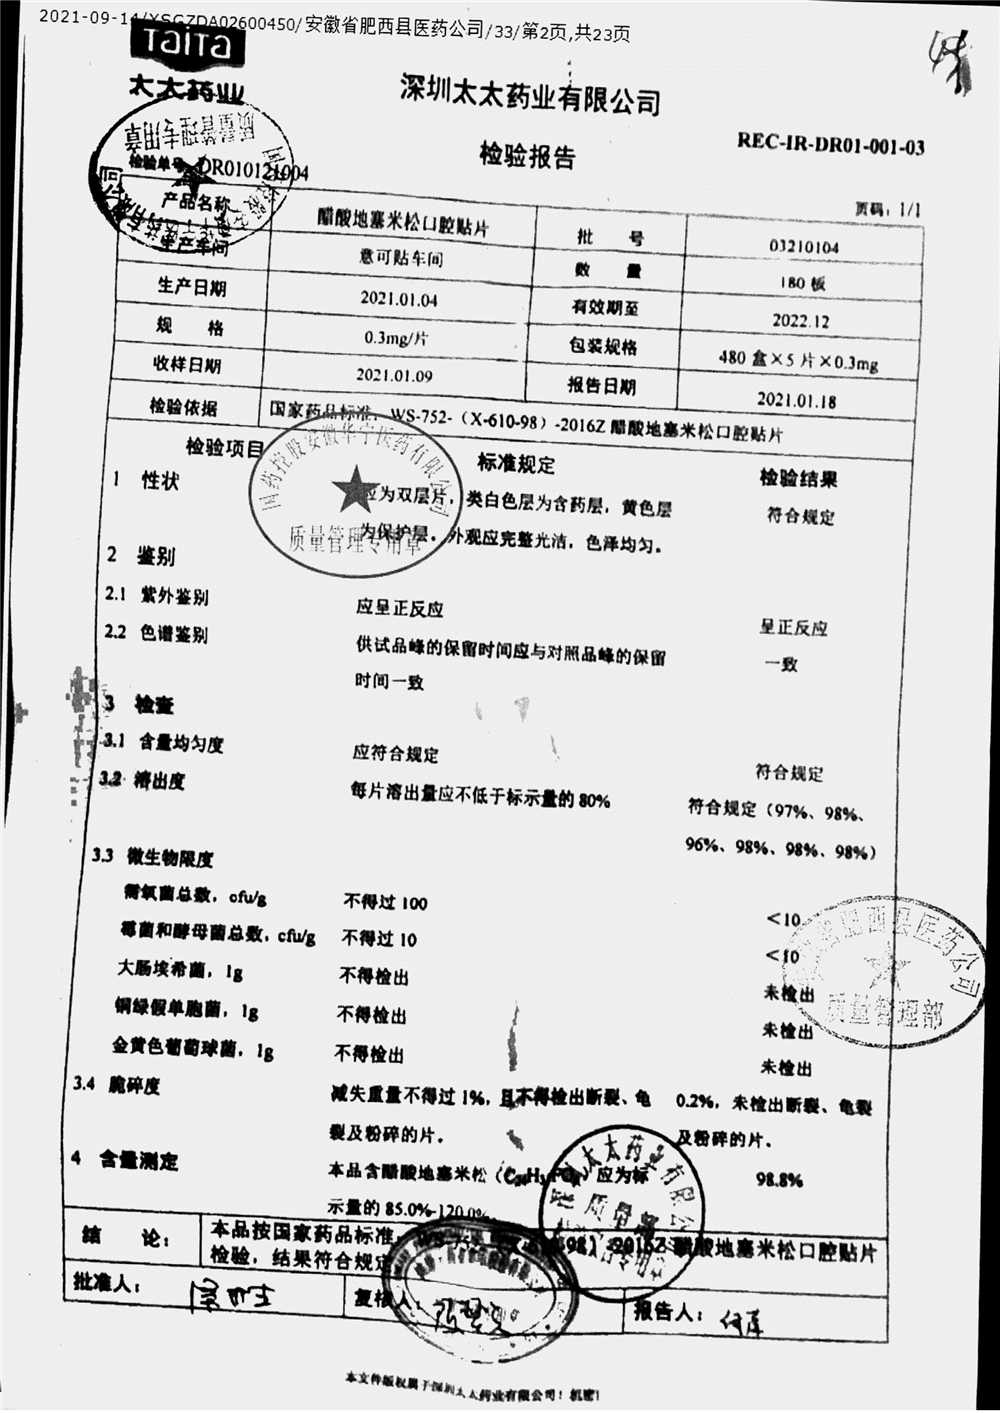 2021-09-14/XSGZDA02600450/安徽省肥西县医药公司/33/第2页,共23页
TaiTa
太太药业
深圳太太药业有限公司
检验报告
REC-IR-DR01-001-03
质量管理专用章
检验单号 DR010121004
页码：1/1
产品名称 醋酸地塞米松口腔贴片 批 号 03210104
生产车间 意可贴车间 数 量 180 板
生产日期 2021.01.04 有效期至 2022.12
规 格 0.3mg/片 包装规格 480 盒×5 片×0.3mg
收样日期 2021.01.09 报告日期 2021.01.18
检验依据 国家药品标准：WS-752-（X-610-98）-2016Z 醋酸地塞米松口腔贴片
检验项目 标准规定 检验结果
1 性状 应为双层片，类白色层为含药层，黄色层 符合规定
为保护层。外观应完整光洁，色泽均匀。
国药控股安徽华宁医药有限公司
质量管理专用章
2 鉴别
2.1 紫外鉴别 应呈正反应 呈正反应
2.2 色谱鉴别 供试品峰的保留时间应与对照品峰的保留 一致
时间一致
3 检查
3.1 含量均匀度 应符合规定 符合规定
3.2 溶出度 每片溶出量应不低于标示量的 80% 符合规定（97%、98%、
96%、98%、98%、98%）
3.3 微生物限度
需氧菌总数，cfu/g 不得过 100 <10
霉菌和酵母菌总数，cfu/g 不得过 10 <10
大肠埃希菌，1g 不得检出 未检出
铜绿假单胞菌，1g 不得检出 未检出
金黄色葡萄球菌，1g 不得检出 未检出
肥西县医药公司
质量管理部
3.4 脆碎度 减失重量不得过 1%，且不得检出断裂、龟 0.2%，未检出断裂、龟裂
裂及粉碎的片。 及粉碎的片。
4 含量测定 本品含醋酸地塞米松（ 应为标 98.8%
示量的 85.0%-120.0%
太太药业有限公
质量部
结 论： 本品按国家药品标准， 2016Z 醋酸地塞米松口腔贴片
检验，结果符合规定
批准人： 复核人： 报告人：
本文件版权属于深圳太太药业有限公司！机密！